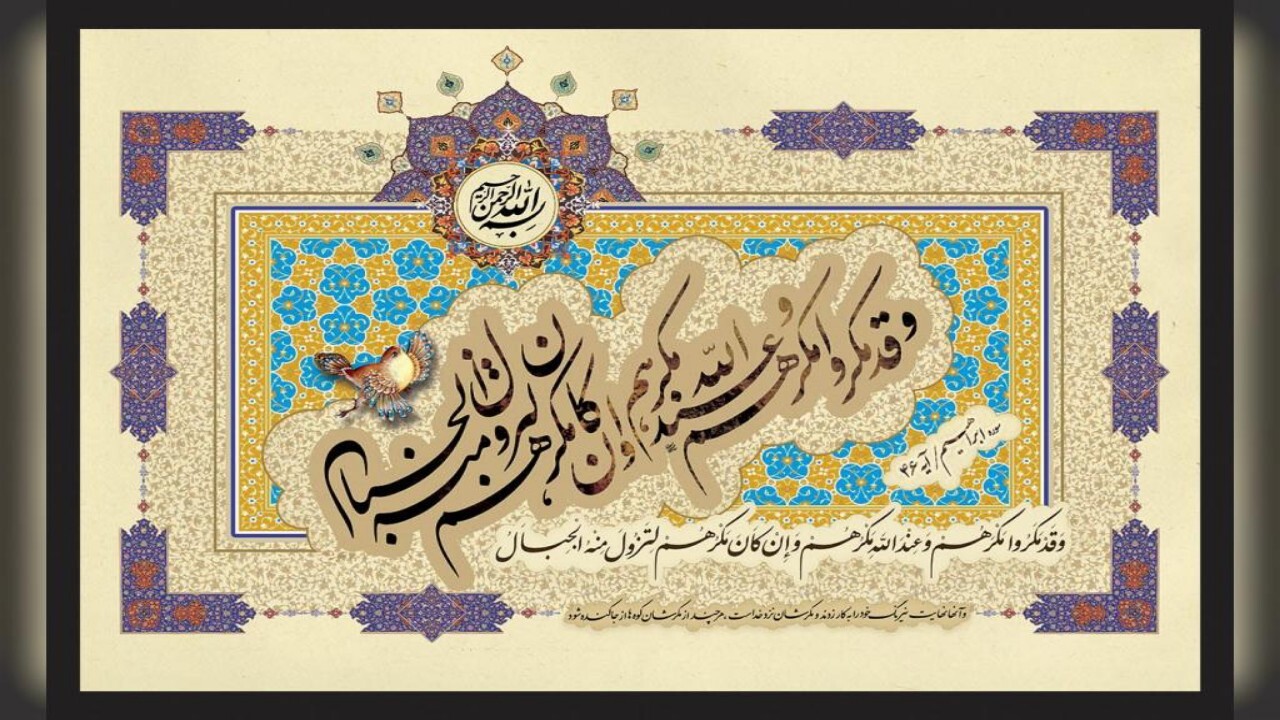 بسم الله الرحمن الرحیم
وقد مکروا مکرهم وعند الله مکرهم وان کان مکرهم لتزول منه الجبال
سوره ابراهیم / آیه ۴۶
وَقَدْ مَکَرُوا مَکْرَهُمْ وَعِنْدَ اللَّهِ مَکْرُهُمْ وَإِنْ کَانَ مَکْرُهُمْ لِتَزُولَ مِنْهُ الْجِبَالُ
و آنها نهایت نیرنگ خود را به کار زدند و مکرشان نزد خداست ، هر چند از مکرشان کوه‌ها از جا کنده شود